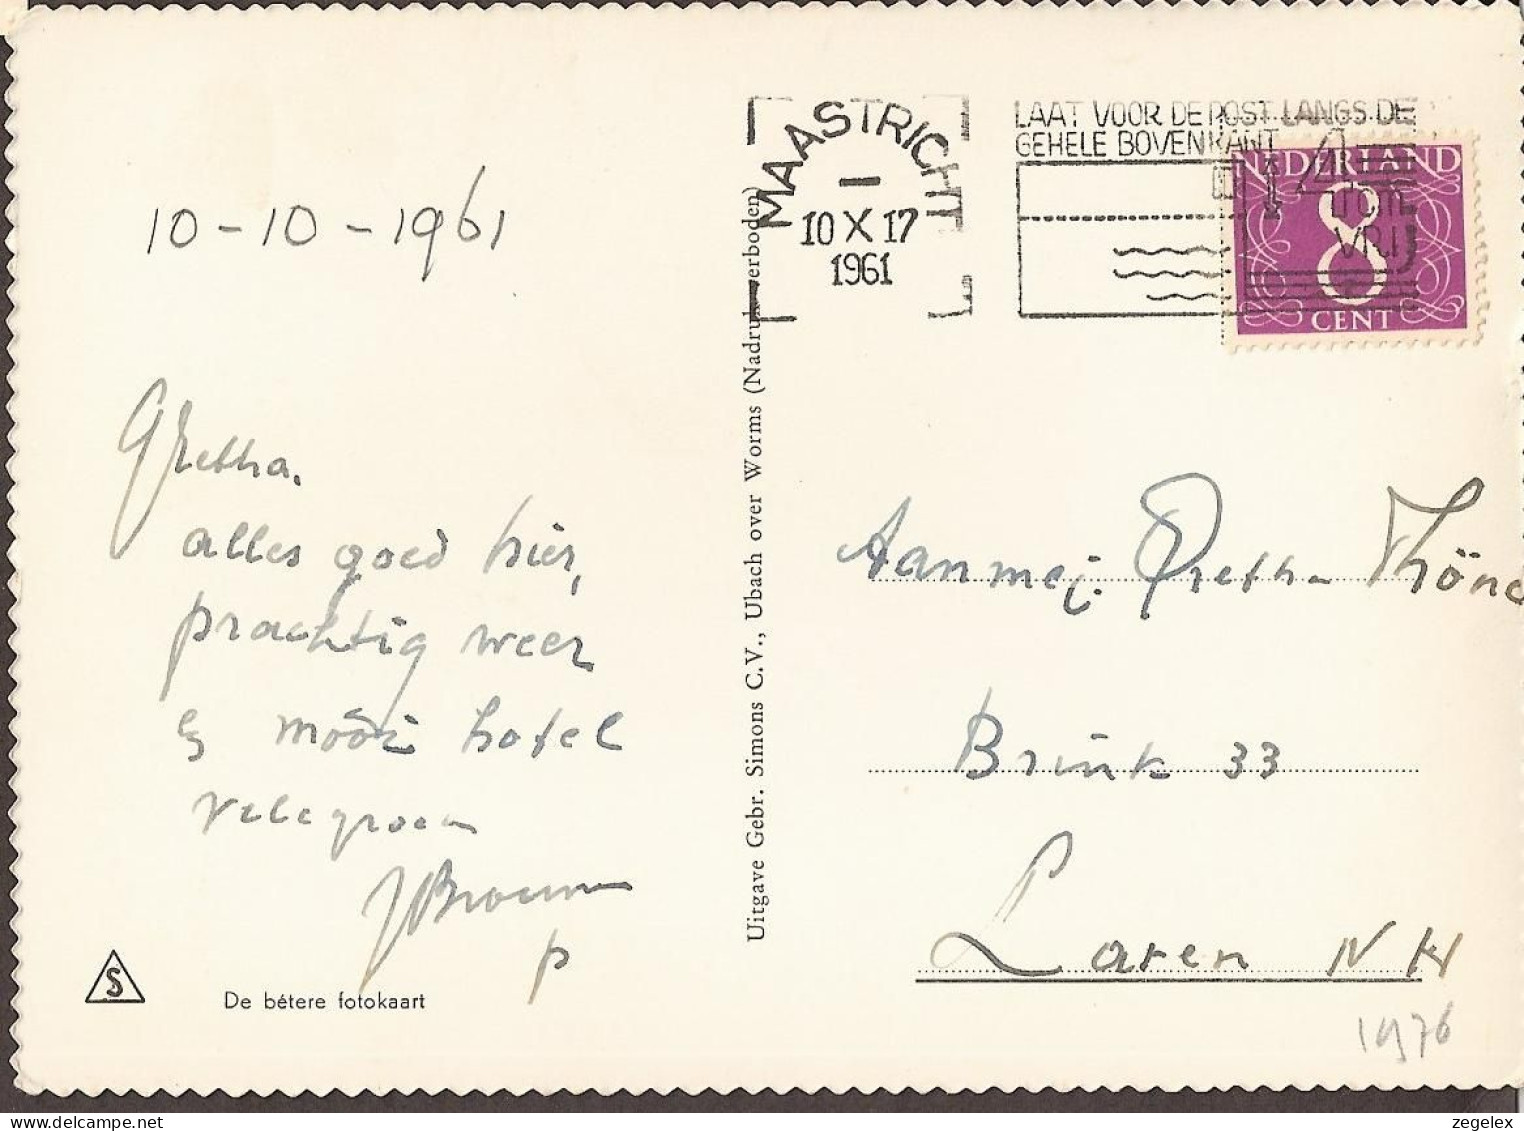 10-10-1961
Gretha.
alles goed hier,
prachtig weer
& mooi hotel
vele groeten
De bétere fotokaart
S
Uitgave Gebr. Simons C.V., Ubach over Worms (Nadruk verboden)
MAASTRICHT
10 X 17
1961
LAAT VOOR DE POST LANGS DE
GEHELE BOVENKANT
4 cm
VRIJ
NEDERLAND
8
CENT
Aan mej. Gretha
Brink 33
Laren NH
1976
zegelex